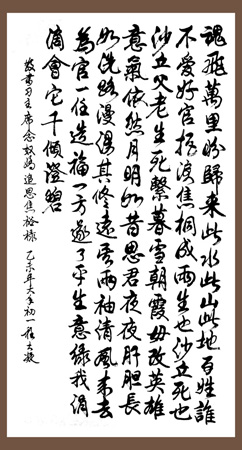 魂飛萬里盼歸來此水此山此地百姓誰
不愛好官把淚焦桐成雨生也沙丘死也
沙丘父老生死繫暮雪朝霜毋改英雄
意氣依然月明如昔思君夜夜肝胆長
如洗路漫漫其修遠矣兩袖清風來去
為官一任造福一方遂了平生意綠我涓
滴會它千頃澄碧
敬書习主席念奴嬌追思焦裕祿 乙未年大年初一